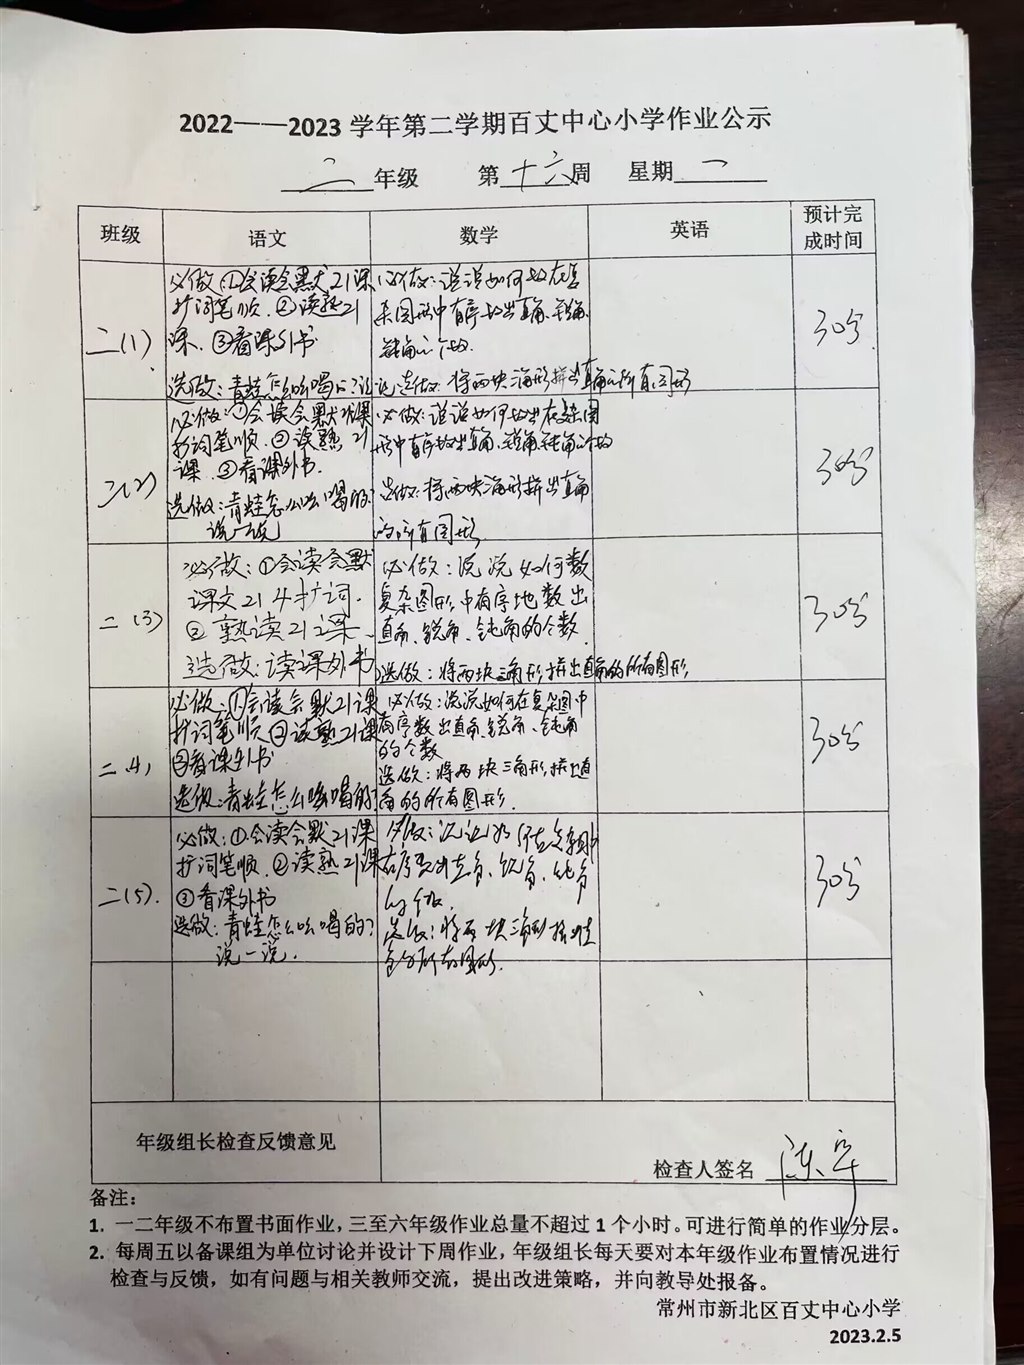 2022——2023 学年第二学期百丈中心小学作业公示
二年级 第十六周 星期一
班级 语文 数学 英语 预计完成时间
二(1)
必做①会读会默21课
扩词笔顺.②读熟21
课.③看课外书
选做:青蛙怎么喝的?
必做:说说如何
图形中有序数出直角、锐角、
钝角的个数.
选做:将两块三角形拼出直角的所有图形
30分
二(2)
必做:①会读会默21课
扩词笔顺.②读熟21
课.③看课外书.
选做:青蛙怎么喝的?
说一说
必做:说说如何
形中有序数出直角、锐角、钝角的个数
选做:将两块三角形拼出直角
的所有图形
30分
二(3)
必做:①会读会默
课文21 4扩词.
②熟读21课.
选做:读课外书
必做:说说如何数
复杂图形中有序地数出
直角、锐角、钝角的个数.
选做:将两块三角形拼出直角的所有图形.
30分
二(4)
必做:①会读会默21课
扩词笔顺②读熟21课
③看课外书
选做:青蛙怎么喝的?
必做:说说如何在复杂图中
有序数出直角、锐角、钝角
的个数
选做:将两块三角形拼出直
角的所有图形.
30分
二(5).
必做:①会读会默21课
扩词笔顺.②读熟21课
③看课外书
选做:青蛙怎么喝的?
说一说.
必做:
直角、锐角、钝角
的个数.
选做:将两块三角形拼出直
角的所有图形.
30分
年级组长检查反馈意见
检查人签名 陈
备注:
1. 一二年级不布置书面作业,三至六年级作业总量不超过 1 个小时。可进行简单的作业分层。
2. 每周五以备课组为单位讨论并设计下周作业,年级组长每天要对本年级作业布置情况进行
检查与反馈,如有问题与相关教师交流,提出改进策略,并向教导处报备。
常州市新北区百丈中心小学
2023.2.5